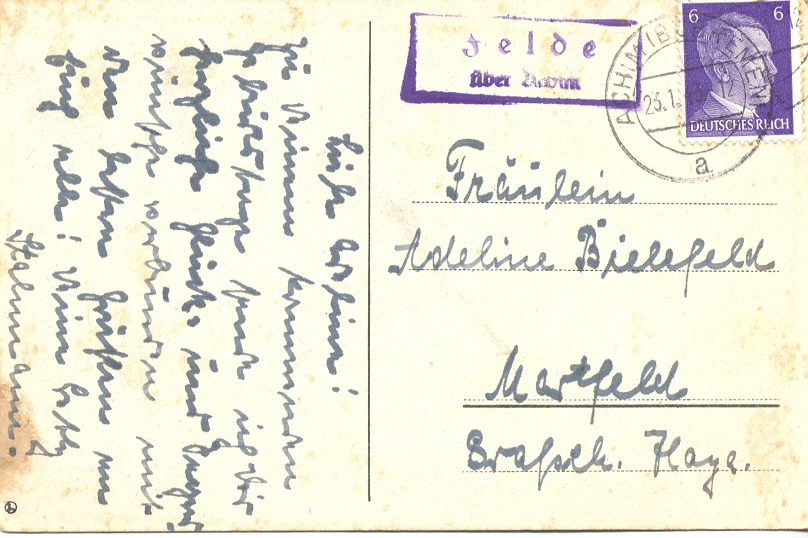 Felde
über Achim
6 6
DEUTSCHES REICH
ACHIM (BZ BREMEN)
12
a
Fräulein
Adeline Bielefeld
Martfeld
Grafsch. Hoya.
Liebe Adeline!
Zu Deinem kommenden
Geburtstage sende ich Dir
herzliche Glück- und Segens-
wünsche verbunden mit
den besten Grüßen an
Euch alle! Deine